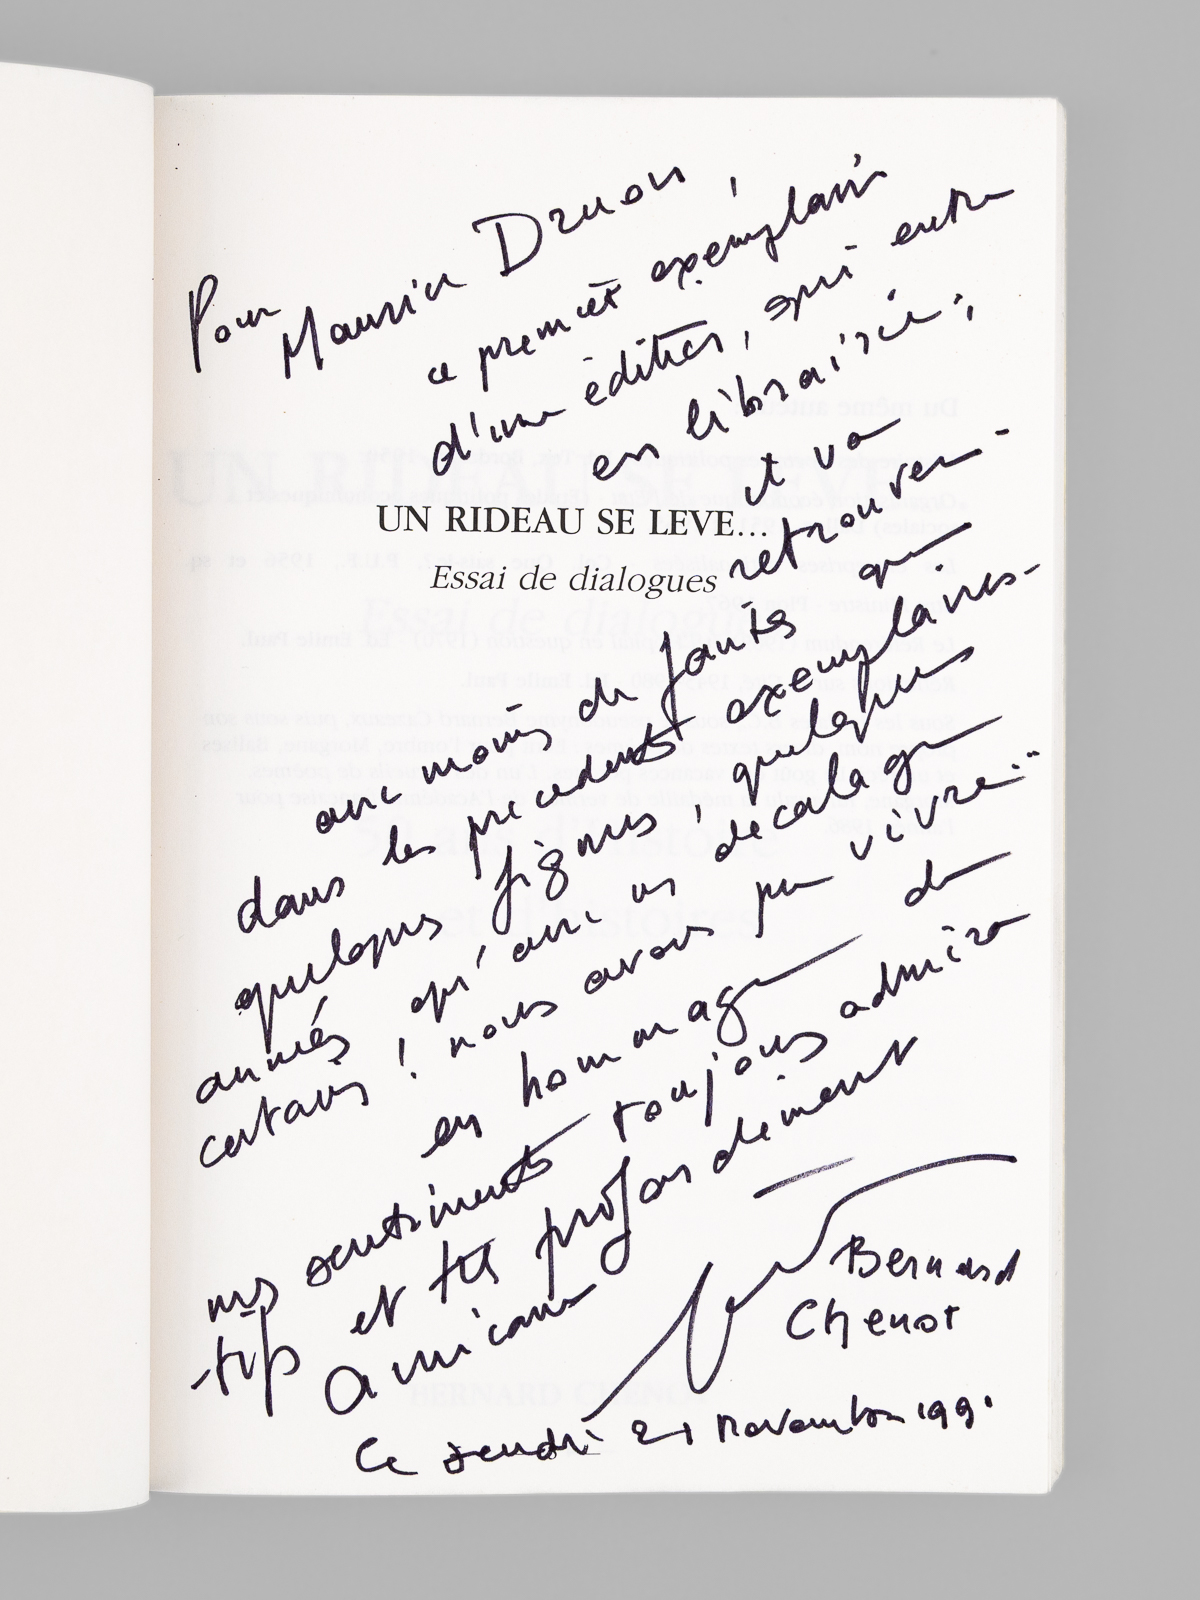 Pour
Maurice Druon,
ce premier exemplaire
d'une édition, qui entre
en librairie,
et va
UN RIDEAU SE LEVE...
retrouver
Essai de dialogues
avec moins de fautes que
dans les précédents exemplaires
quelques figures, quelques
années qu'avec un décalage
certains ! nous avons pu vivre...
en hommage de
mes sentiments toujours admira
-tifs et très profondément
amicaux
Bernard
Chenot
Ce jeudi 21 novembre 1991